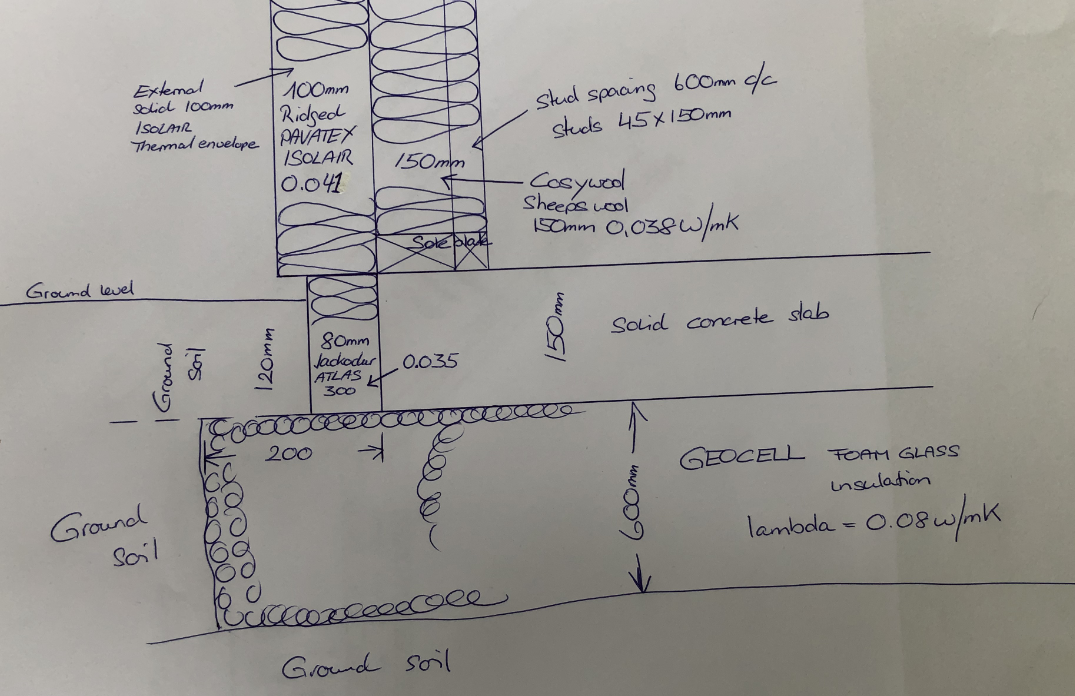 External
Solid 100mm
ISOLAIR
Thermal envelope
100mm
Ridged
PAVATEX
ISOLAIR
0.041
Stud spacing 600mm c/c
studs 45x150mm
150mm
Cosywool
Sheeps wool
150mm 0,038 W/mK
Sole plate
Ground level
Ground
Soil
120mm
80mm
Jackodur
ATLAS
300
0.035
150mm
Solid concrete slab
200
600mm
GEOCELL FOAM GLASS
insulation
lambda = 0.08 W/mK
Ground
soil
Ground soil